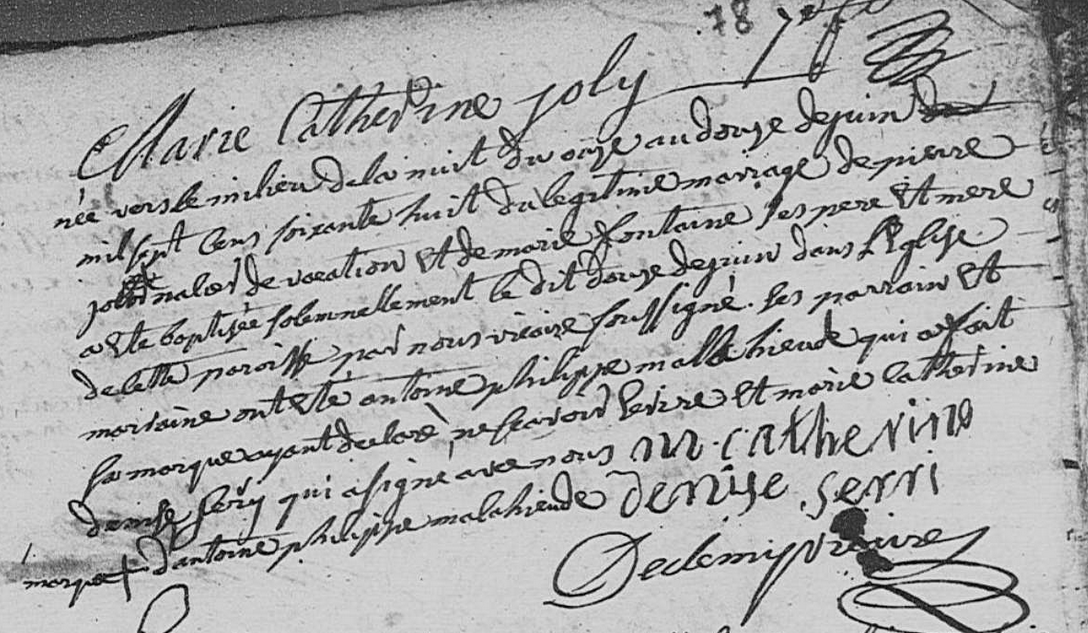 78
Marie Catherine joly
née vers le milieu de la nuit du onze au douze de juin
mil sept cens soixante huit du legitime mariage de pierre
joly de vocation et de marie fontaine ses pere et mere
a ete baptisée solemnellement le dit douze de juin dans l'Eglise
de cette paroisse par nous vicaire soussigné. ses parrain et
marraine ont ete antoine philippe mallahieude qui a fait
sa marque ayant declaré ne scavoir ecrire et marie catherine
denise sery qui a signé avec nous m. catherine
marque + d'antoine philippe malahieude denise serri
Declemy vicaire